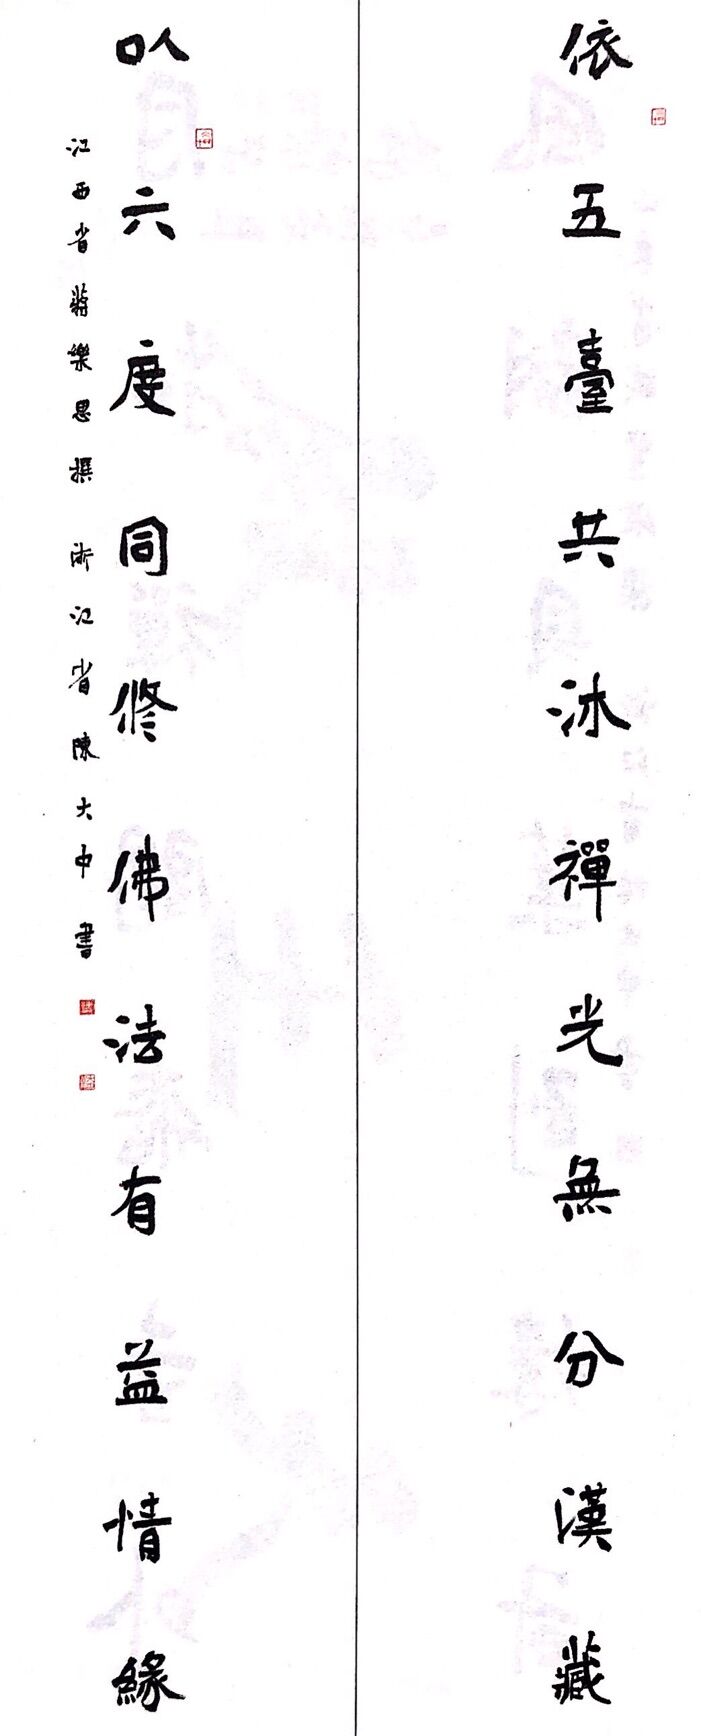 依五臺共沐禪光無分漢藏
㕥六度同修佛法有益情緣
江西省蔣樂思撰 浙江省陳大中書